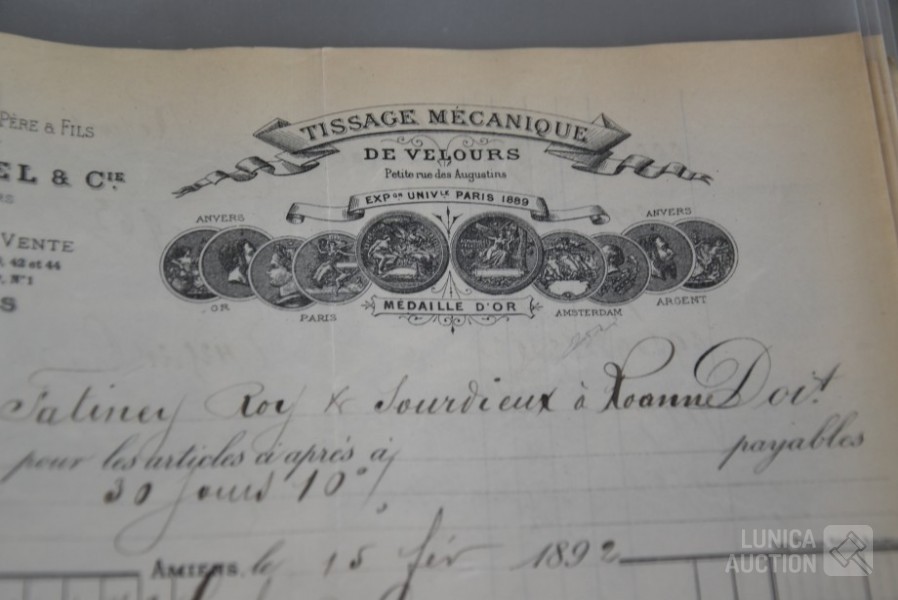 PÈRE & FILS
EL & CIE
VENTE
42 et 44
N°1
S
TISSAGE MÉCANIQUE
DE VELOURS
Petite rue des Augustins
EXPON UNIVLE PARIS 1889
ANVERS
ANVERS
OR
PARIS
MÉDAILLE D'OR
AMSTERDAM
ARGENT
Roy & Sourdieux à Roanne Doit
pour les articles ci après à payables
30 jours 10%
AMIENS, le 15 fév 1892
LUNICA
AUCTION